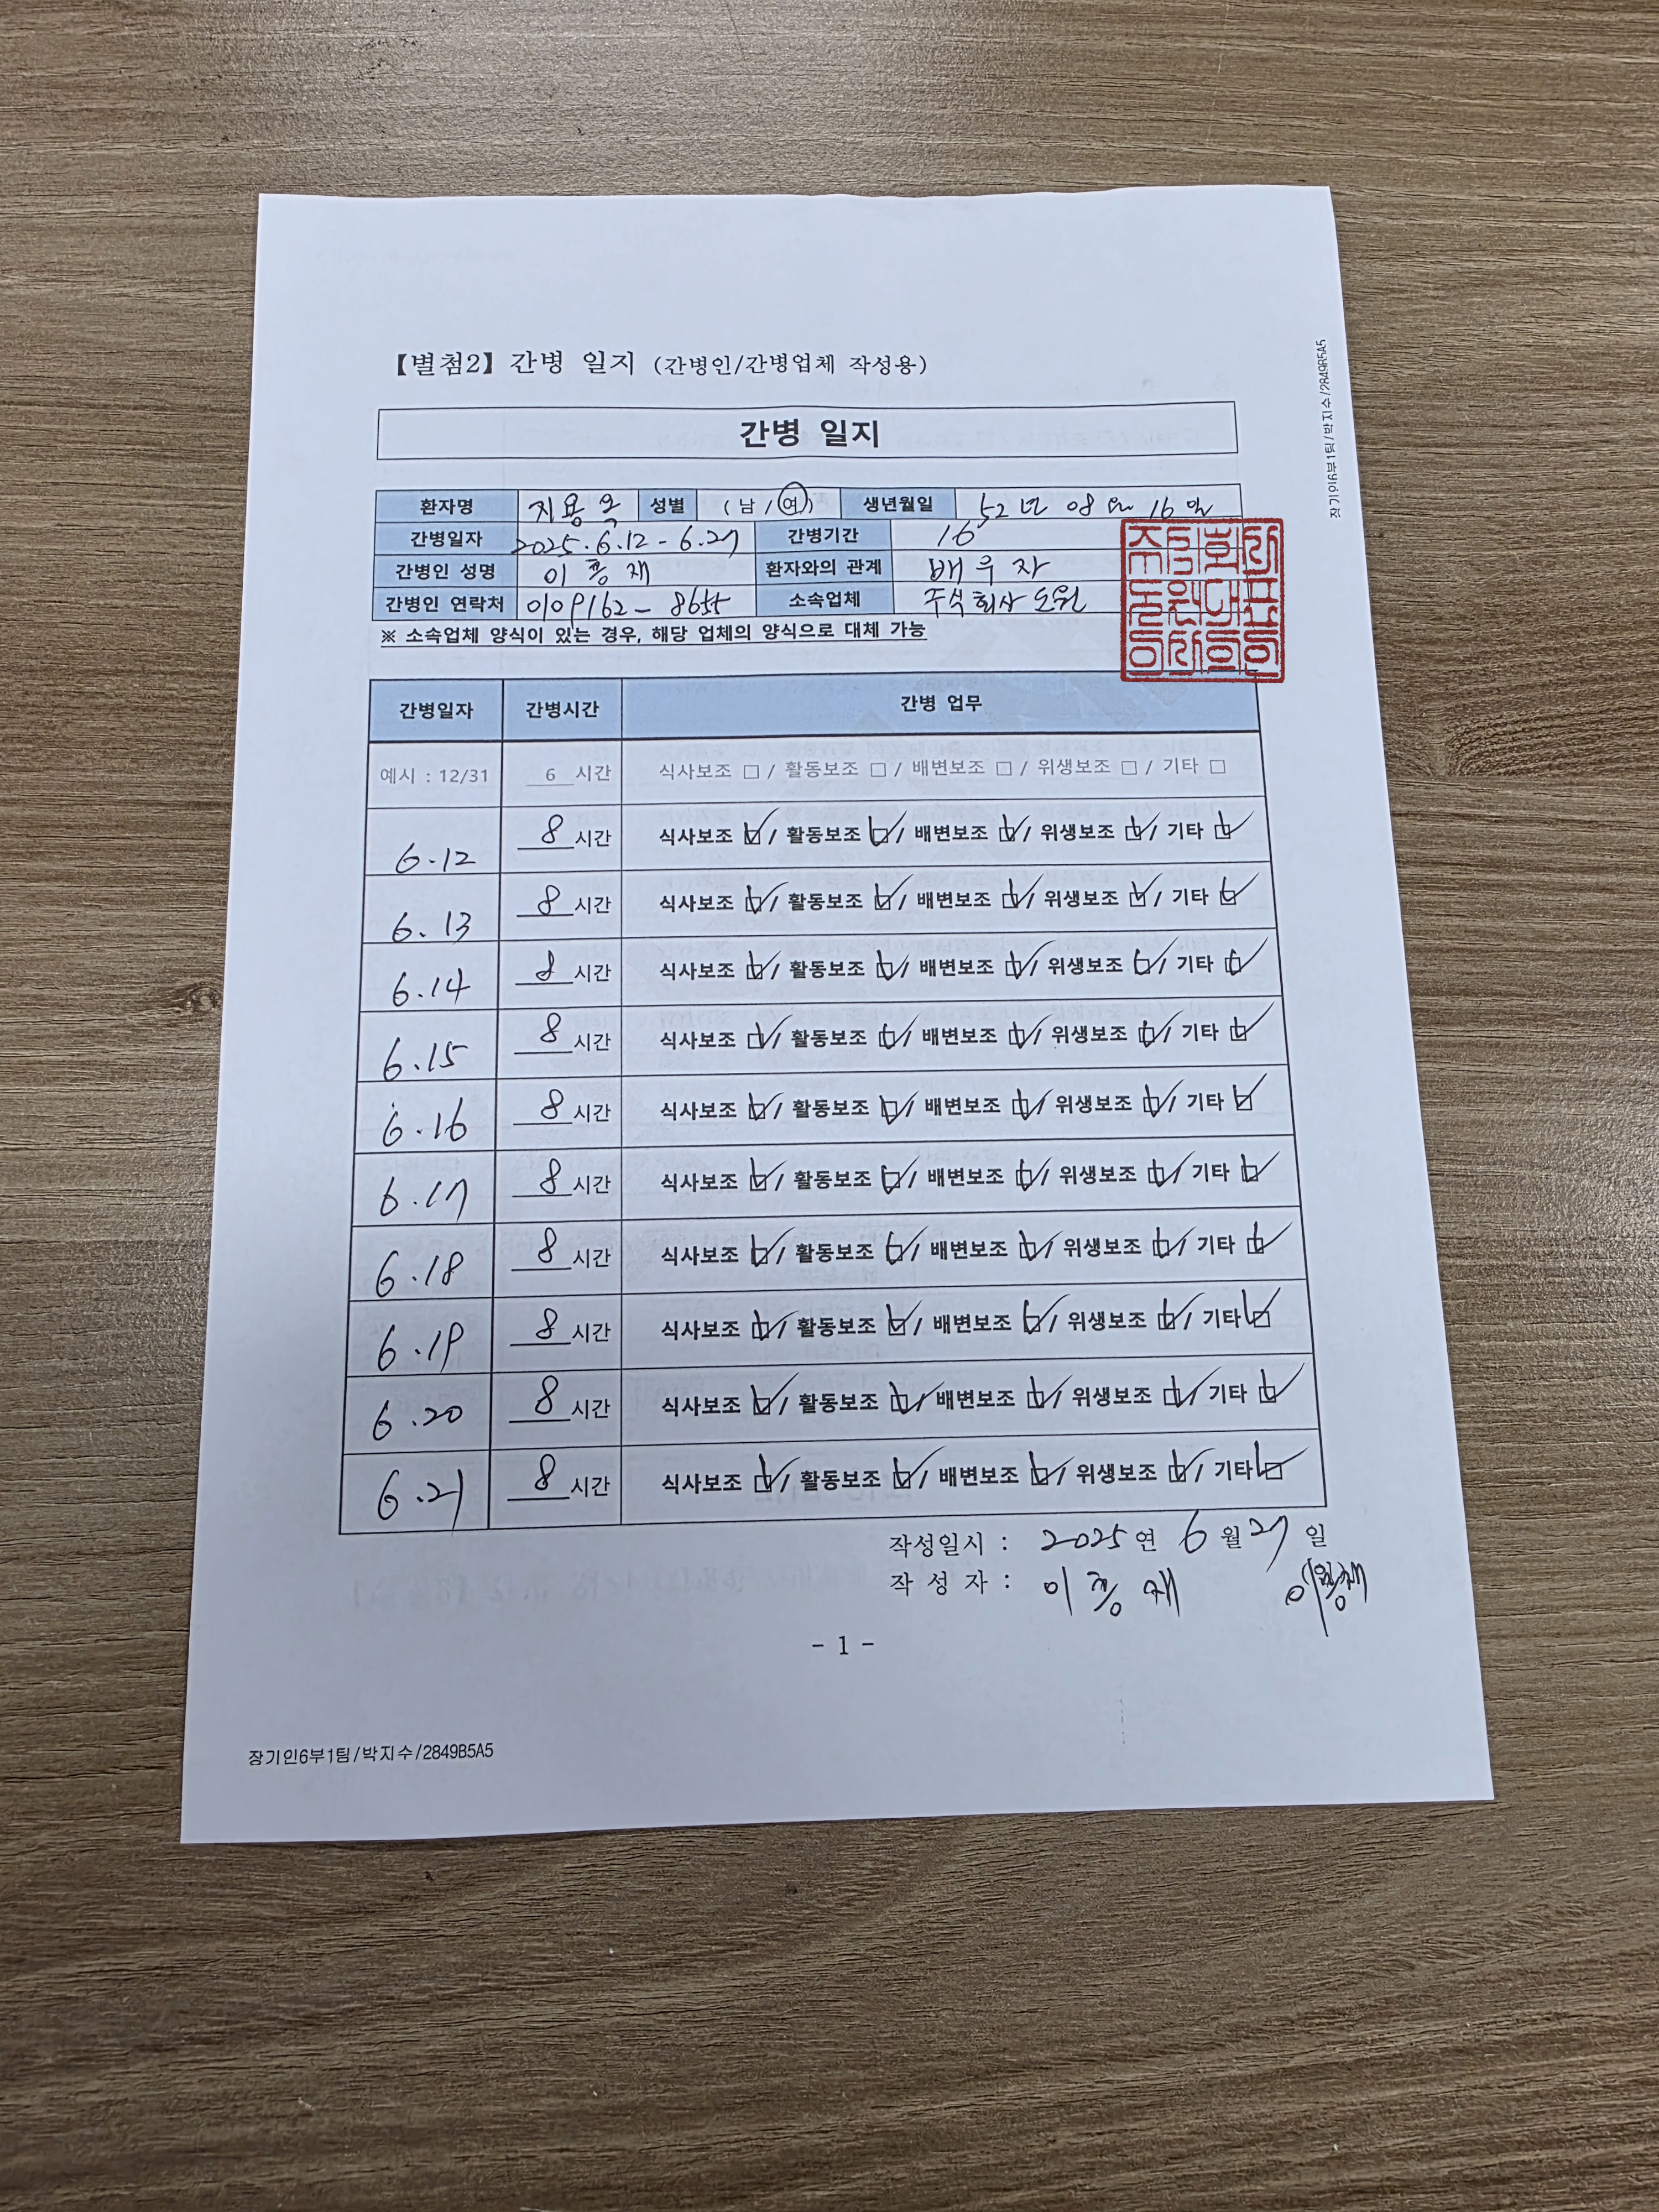 【별첨2】 간병 일지 (간병인/간병업체 작성용)
간병 일지
환자명 지용옥 성별 ( 남 / 여 ) 생년월일 52년 08월 16일
간병일자 2025.6.12 - 6.27 간병기간 16
간병인 성명 이풍재 환자와의 관계 배우자
간병인 연락처 0109162-8655 소속업체 주식회사 도원
※ 소속업체 양식이 있는 경우, 해당 업체의 양식으로 대체 가능
간병일자 간병시간 간병 업무
예시 : 12/31 6 시간 식사보조 □ / 활동보조 □ / 배변보조 □ / 위생보조 □ / 기타 □
6.12 8 시간 식사보조 ☑ / 활동보조 ☑ / 배변보조 ☑ / 위생보조 ☑ / 기타 ☑
6.13 8 시간 식사보조 ☑ / 활동보조 ☑ / 배변보조 ☑ / 위생보조 ☑ / 기타 ☑
6.14 8 시간 식사보조 ☑ / 활동보조 ☑ / 배변보조 ☑ / 위생보조 ☑ / 기타 ☑
6.15 8 시간 식사보조 ☑ / 활동보조 ☑ / 배변보조 ☑ / 위생보조 ☑ / 기타 ☑
6.16 8 시간 식사보조 ☑ / 활동보조 ☑ / 배변보조 ☑ / 위생보조 ☑ / 기타 ☑
6.17 8 시간 식사보조 ☑ / 활동보조 ☑ / 배변보조 ☑ / 위생보조 ☑ / 기타 ☑
6.18 8 시간 식사보조 ☑ / 활동보조 ☑ / 배변보조 ☑ / 위생보조 ☑ / 기타 ☑
6.19 8 시간 식사보조 ☑ / 활동보조 ☑ / 배변보조 ☑ / 위생보조 ☑ / 기타 ☑
6.20 8 시간 식사보조 ☑ / 활동보조 ☑ / 배변보조 ☑ / 위생보조 ☑ / 기타 ☑
6.21 8 시간 식사보조 ☑ / 활동보조 ☑ / 배변보조 ☑ / 위생보조 ☑ / 기타 ☑
작성일시 : 2025 연 6 월 27 일
작 성 자 : 이풍재
- 1 -
장기인6부1팀/박지수/2849B5A5
장기인6부1팀/박지수/2849B5A5